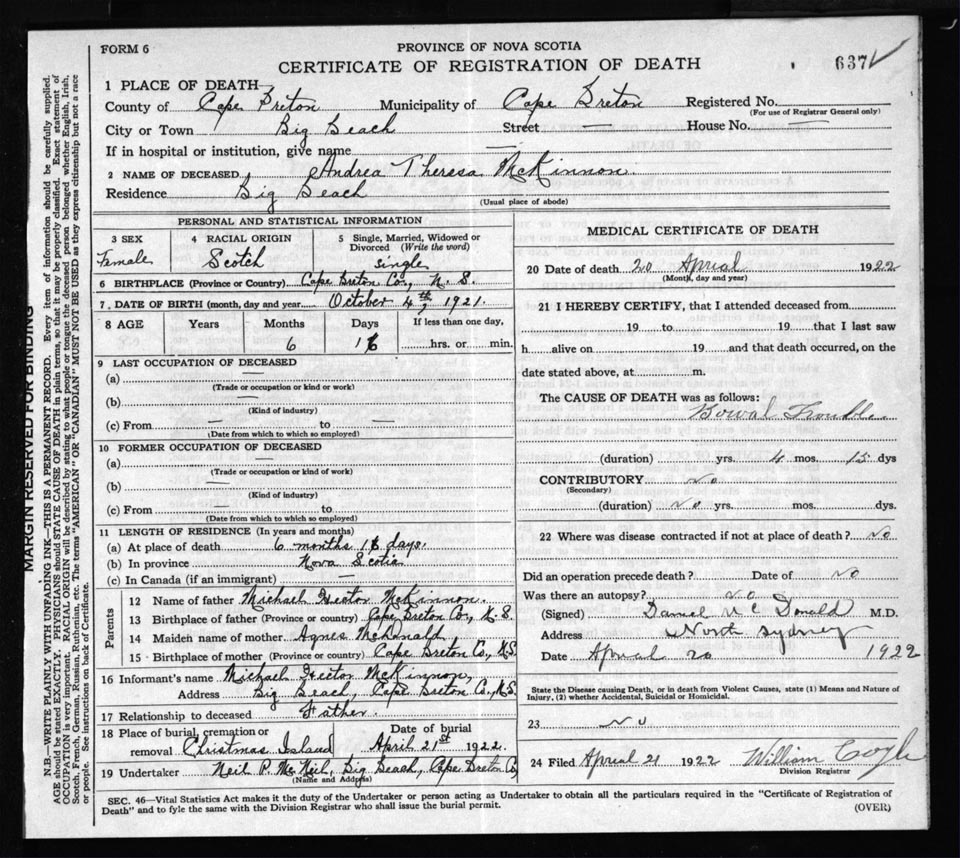 FORM 6
PROVINCE OF NOVA SCOTIA
CERTIFICATE OF REGISTRATION OF DEATH
637
1 PLACE OF DEATH—
County of Cape Breton Municipality of Cape Breton Registered No.
(For use of Registrar General only)
City or Town Big Beach Street — House No. —
If in hospital or institution, give name —
2 NAME OF DECEASED Andrea Theresa McKinnon.
Residence Big Beach
(Usual place of abode)
PERSONAL AND STATISTICAL INFORMATION
3 SEX 4 RACIAL ORIGIN 5 Single, Married, Widowed or
Divorced (Write the word)
Female Scotch single
6 BIRTHPLACE (Province or Country) Cape Breton Co., N. S.
7 DATE OF BIRTH (month, day and year) October 4th, 1921.
8 AGE Years Months Days If less than one day,
6 16 hrs. or min.
9 LAST OCCUPATION OF DECEASED
(a) —
(Trade or occupation or kind or work)
(b) —
(Kind of industry)
(c) From — to —
(Date from which to which so employed)
10 FORMER OCCUPATION OF DECEASED
(a) —
(Trade or occupation or kind of work)
(b) —
(Kind of industry)
(c) From — to
(Date from which to which so employed)
11 LENGTH OF RESIDENCE (In years and months)
(a) At place of death 6 months 16 days.
(b) In province Nova Scotia
(c) In Canada (if an immigrant) —
Parents
12 Name of father Michael Hector McKinnon.
13 Birthplace of father (Province or country) Cape Breton Co., N.S.
14 Maiden name of mother Agnes McDonald
15 Birthplace of mother (Province or country) Cape Breton Co., N.S.
16 Informant's name Michael Hector McKinnon,
Address Big Beach, Cape Breton Co., N.S.
17 Relationship to deceased Father.
18 Place of burial, cremation or Date of burial
removal Christmas Island April 21st 1922.
19 Undertaker Neil P. McNeil, Big Beach, Cape Breton Co
(Name and Address)
MEDICAL CERTIFICATE OF DEATH
20 Date of death 20 Aprial 1922
(Month, day and year)
21 I HEREBY CERTIFY, that I attended deceased from
19 to 19 that I last saw
h alive on 19 and that death occurred, on the
date stated above, at m.
The CAUSE OF DEATH was as follows:
Bowal Trouble
(duration) yrs. 4 mos. 15 dys
CONTRIBUTORY No
(Secondary)
(duration) No yrs. mos. dys.
22 Where was disease contracted if not at place of death? No
Did an operation precede death? Date of No
Was there an autopsy? No
(Signed) Daniel McDonald M.D.
Address North Sydney
Date Aprial 20 1922
State the Disease causing Death, or in death from Violent Causes, state (1) Means and Nature of
Injury, (2) whether Accidental, Suicidal or Homicidal.
23 No
24 Filed Aprial 21 1922 William Coyle
Division Registrar
SEC. 46—Vital Statistics Act makes it the duty of the Undertaker or person acting as Undertaker to obtain all the particulars required in the "Certificate of Registration of
Death" and to fyle the same with the Division Registrar who shall issue the burial permit.
(OVER)
MARGIN RESERVED FOR BINDING
N.B.—WRITE PLAINLY WITH UNFADING INK—THIS IS A PERMANENT RECORD. Every item of information should be carefully supplied.
AGE should be stated EXACTLY. PHYSICIANS should STATE CAUSE OF DEATH in plain terms, so that it may be properly classified. Exact statement of
OCCUPATION is very important. RACIAL ORIGIN will be described by stating to what people or tongue the deceased person belonged whether English, Irish,
Scotch, French, German, Russian, Ruthenian, etc. The terms "AMERICAN" OR "CANADIAN" MUST NOT BE USED as they express citizenship but not a race
or people. See instructions on back of Certificate.